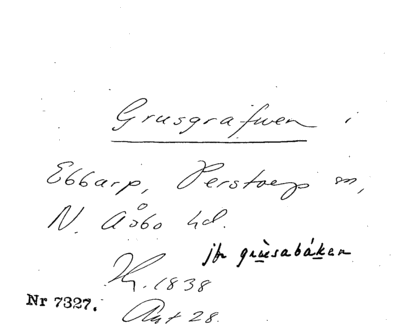 Grusgrafwen i
Ebbarp, Perstorp sn,
N. Åsbo hd.
jfr grùsabáken
1838
Nr 7327.
Ant 28.